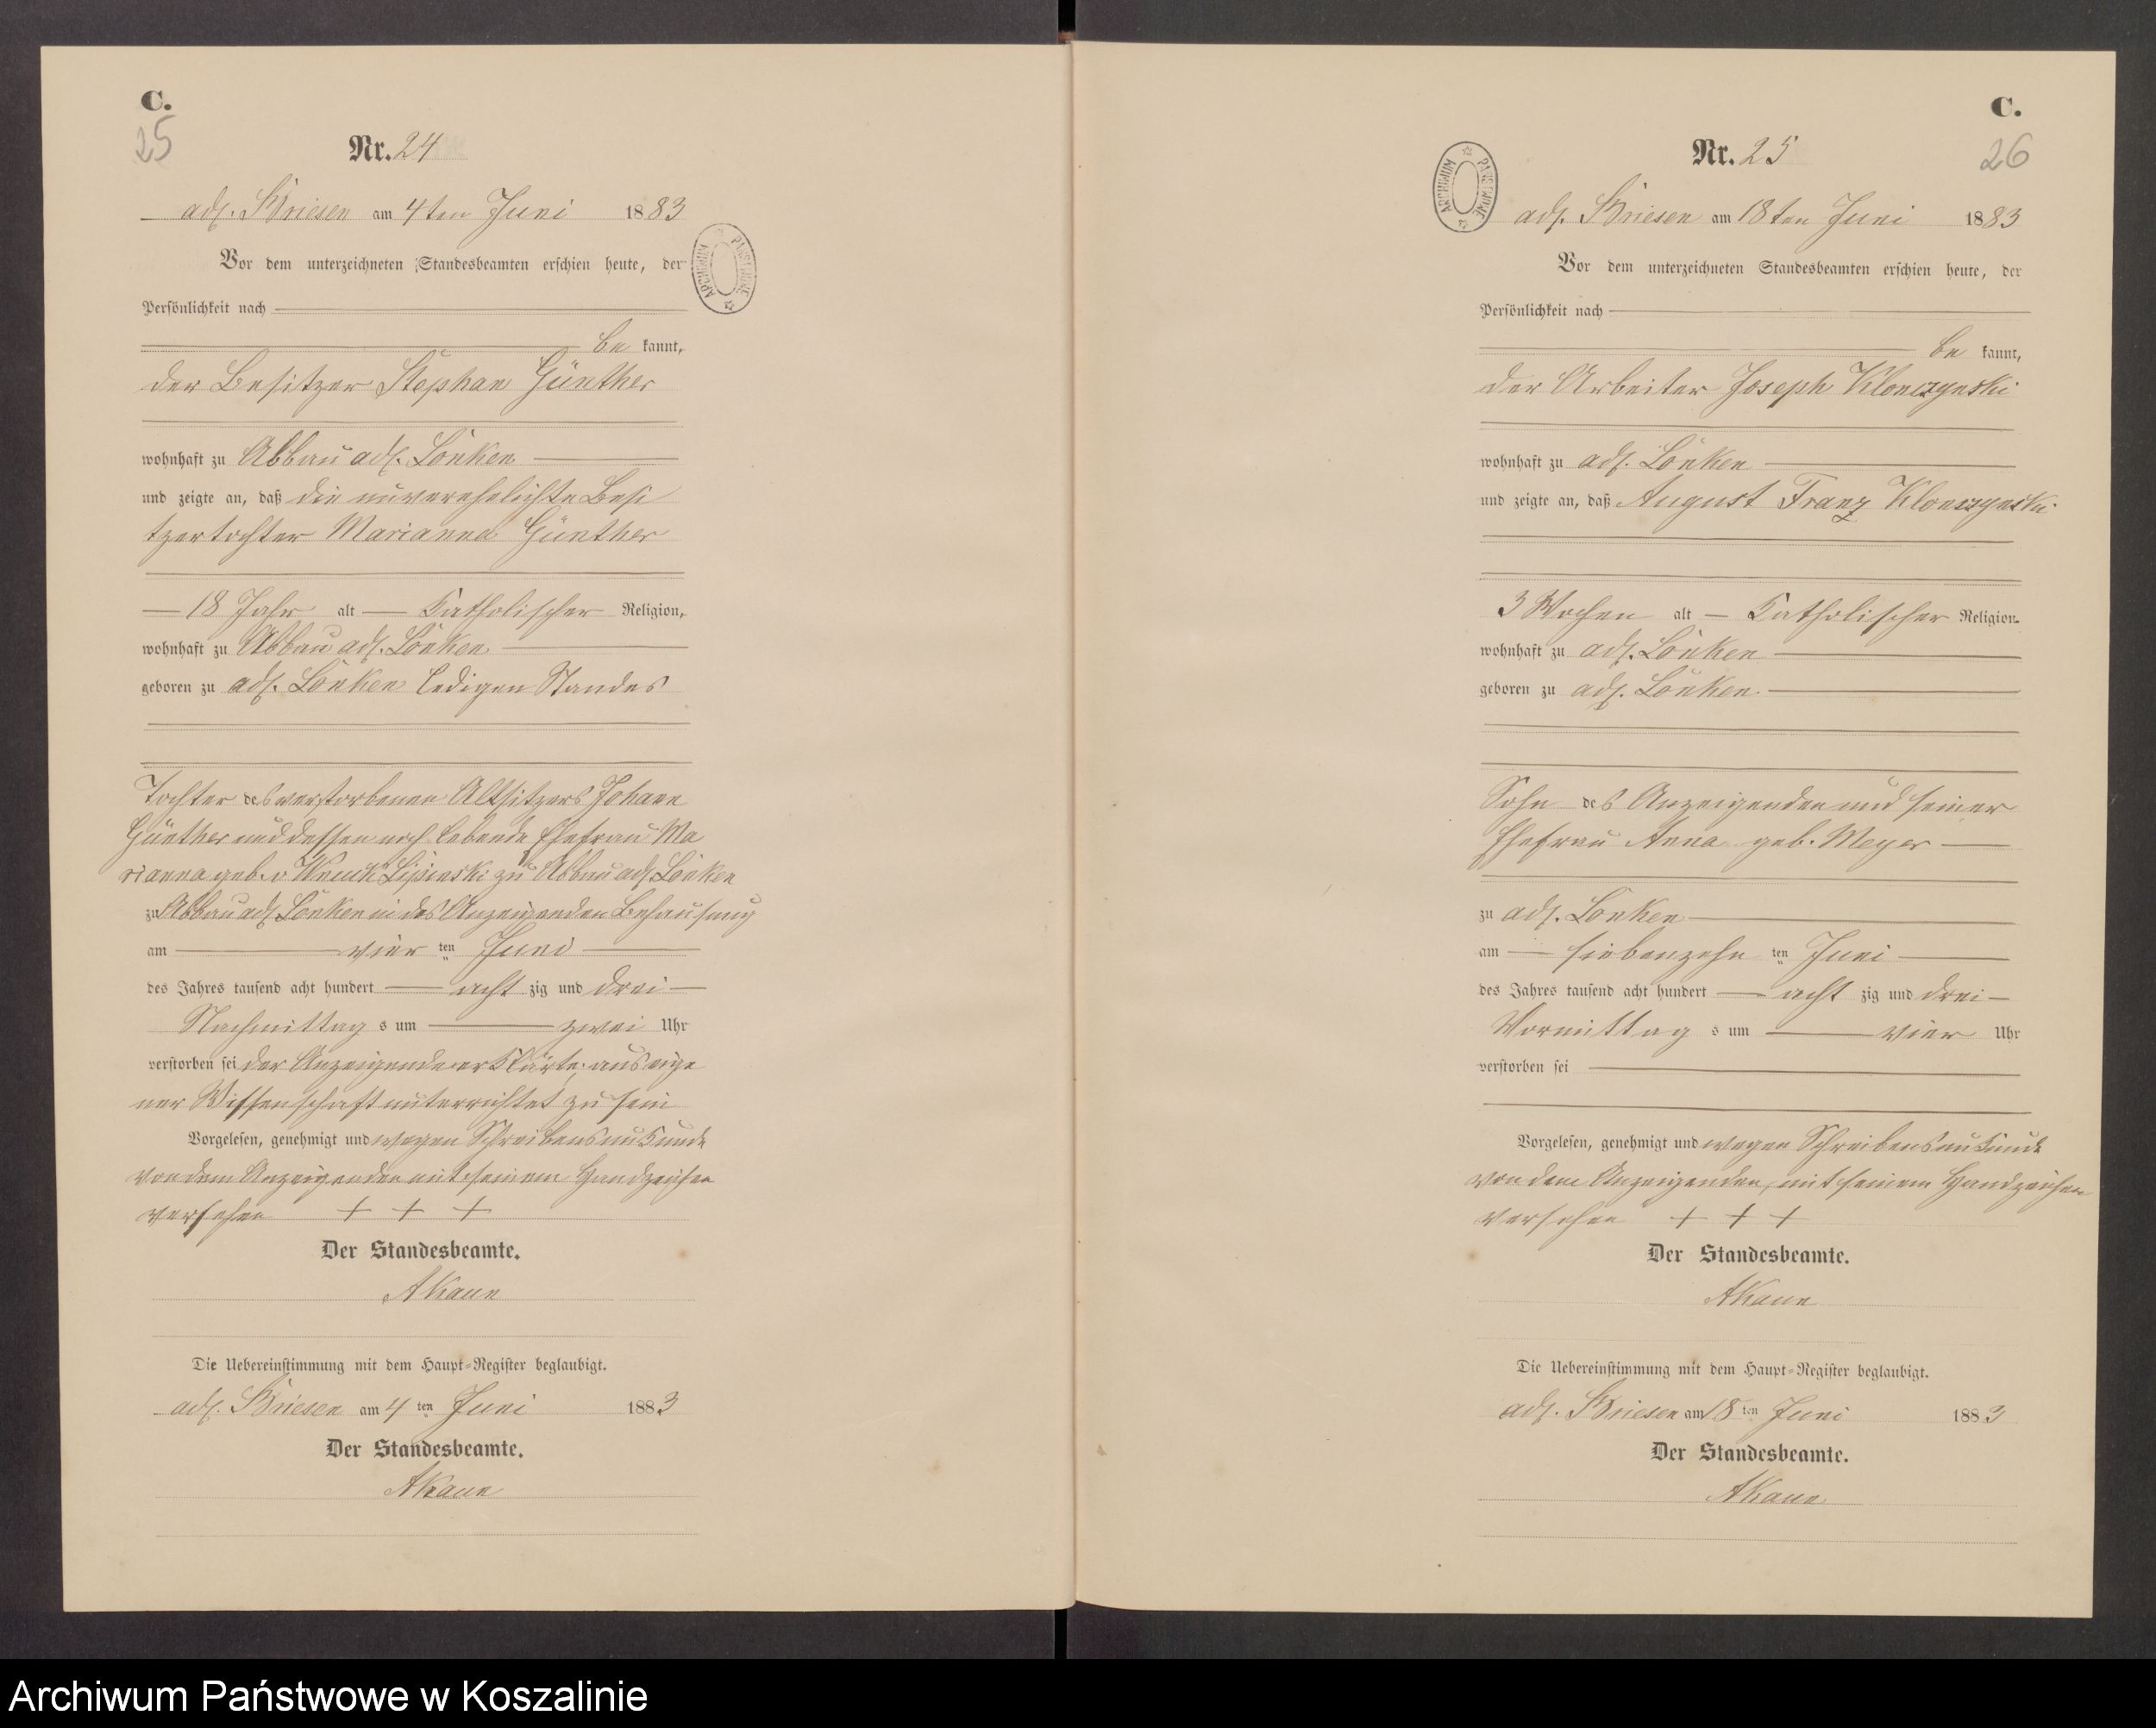 C.
25
Nr. 24
adl. Briesen am 4ten Juni 1883
Vor dem unterzeichneten Standesbeamten erschien heute, der
Persönlichkeit nach
be kannt,
der Besitzer Stephan Günther
wohnhaft zu Abbau adl. Lonken
und zeigte an, daß die unverehelichte Besi
tzertochter Marianna Günther
18 Jahr alt Katholischer Religion,
wohnhaft zu Abbau adl. Lonken
geboren zu adl. Lonken ledigen Standes
Tochter des verstorbenen Altsitzers Johann
Günther und dessen noch lebende Ehefrau Ma
rianna geb. v Wnuck Lipinski zu Abbau adl. Lonken
zu Abbau adl. Lonken in des Anzeigenden Behausung
am vier ten Juni
des Jahres tausend acht hundert acht zig und drei
Nachmittag s um zwei Uhr
verstorben sei der Anzeigende erklärte, aus eige
ner Wissenschaft unterrichtet zu sein
Vorgelesen, genehmigt und wegen Schreibensunkunde
von dem Anzeigenden mit seinem Handzeichen
versehen + + +
Der Standesbeamte.
AKaun
Die Uebereinstimmung mit dem Haupt-Register beglaubigt.
adl. Briesen am 4 ten Juni 1883
Der Standesbeamte.
AKaun
ARCHIWUM PAŃSTWOWE
C.
26
Nr. 25
ARCHIWUM PAŃSTWOWE
adl. Briesen am 18ten Juni 1883
Vor dem unterzeichneten Standesbeamten erschien heute, der
Persönlichkeit nach
be kannt,
der Arbeiter Joseph Klonczynski
wohnhaft zu adl. Lonken
und zeigte an, daß August Franz Klonczynski
3 Wochen alt Katholischer Religion
wohnhaft zu adl. Lonken
geboren zu adl. Lonken
Sohn des Anzeigenden und seiner
Ehefrau Anna geb. Meyer
zu adl. Lonken
am siebenzehn ten Juni
des Jahres tausend acht hundert acht zig und drei
Vormittag s um vier Uhr
verstorben sei
Vorgelesen, genehmigt und wegen Schreibensunkunde
von dem Anzeigenden, mit seinem Handzeichen
versehen + + +
Der Standesbeamte.
AKaun
Die Uebereinstimmung mit dem Haupt-Register beglaubigt.
adl. Briesen am 18 ten Juni 1883
Der Standesbeamte.
AKaun
Archiwum Państwowe w Koszalinie